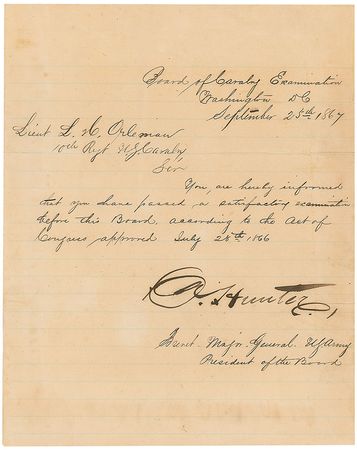 Board of Cavalry Examination
Washington DC
September 25th 1867
Lieut L. H. Orleman
10th Regt US Cavalry
Sir
You, are hereby informed
that you have passed a satisfactory examination
before this Board, according to the Act of
Congress approved July 28th 1866
D. Hunter,
Brevet Major General US Army
President of the Board